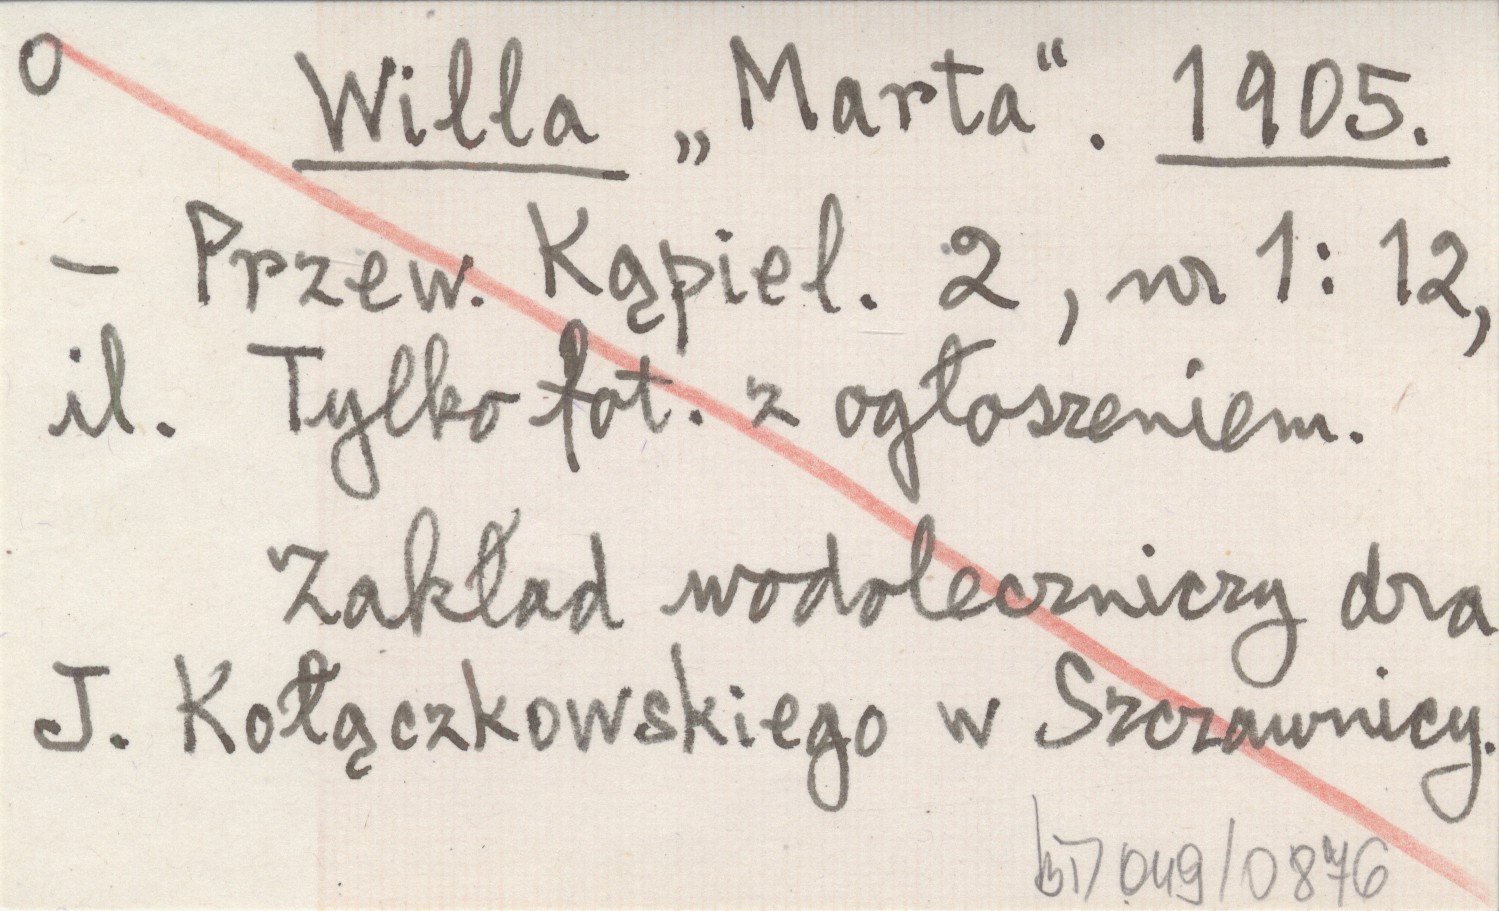 O Willa „Marta“. 1905.
– Przew. Kąpiel. 2, nr 1: 12,
il. Tylko fot. z ogłoszeniem.
Zakład wodoleczniczy dra
J. Kołączkowskiego w Szczawnicy.
049/0876